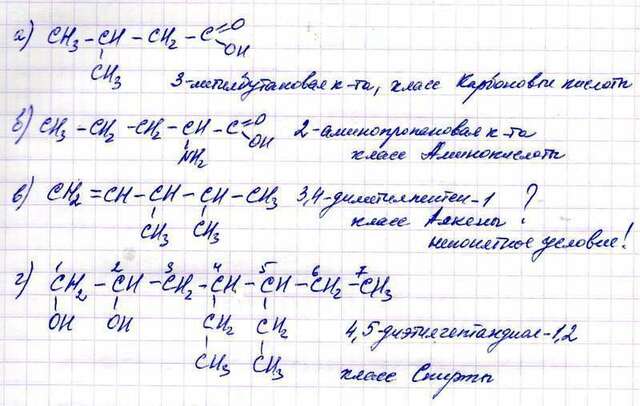 а) CH₃ – CH – CH₂ – C =O
OH
CH₃
3-метилбутановая к-та, класс Карбоновые кислоты
б) CH₃ – CH₂ – CH₂ – CH – C =O
OH
NH₂
2-аминопропановая к-та
класс Аминокислоты
в) CH₂ = CH – CH – CH – CH₃
CH₃ CH₃
3,4-диметилпентен-1 ?
класс Алкены
непонятное условие!
г) 1 2 3 4 5 6 7
CH₂ – CH – CH₂ – CH – CH – CH₂ – CH₃
OH OH CH₂ CH₂
CH₃ CH₃
4,5-диэтилгептандиол-1,2
класс Спирты